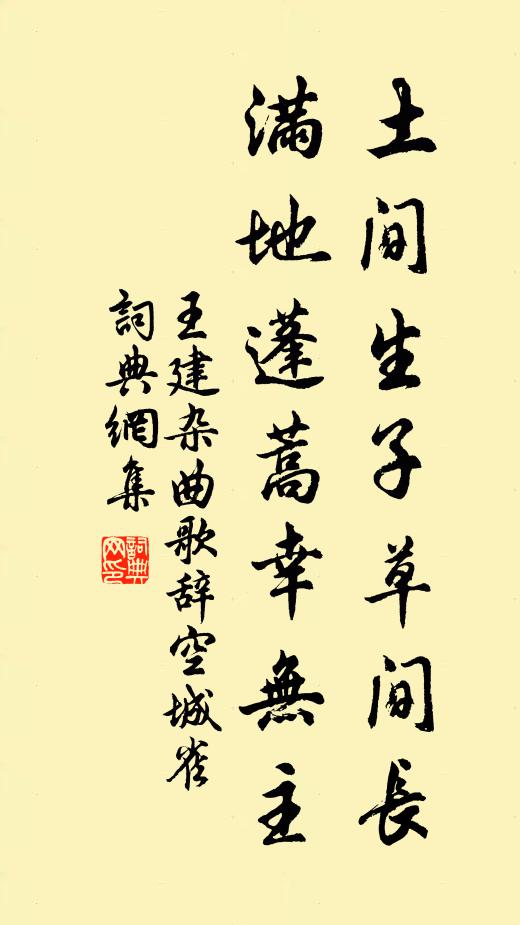 土间生子草间長
满地蓬蒿幸無主
王建杂曲歌辞空城雀
詞典網集
詞典网印